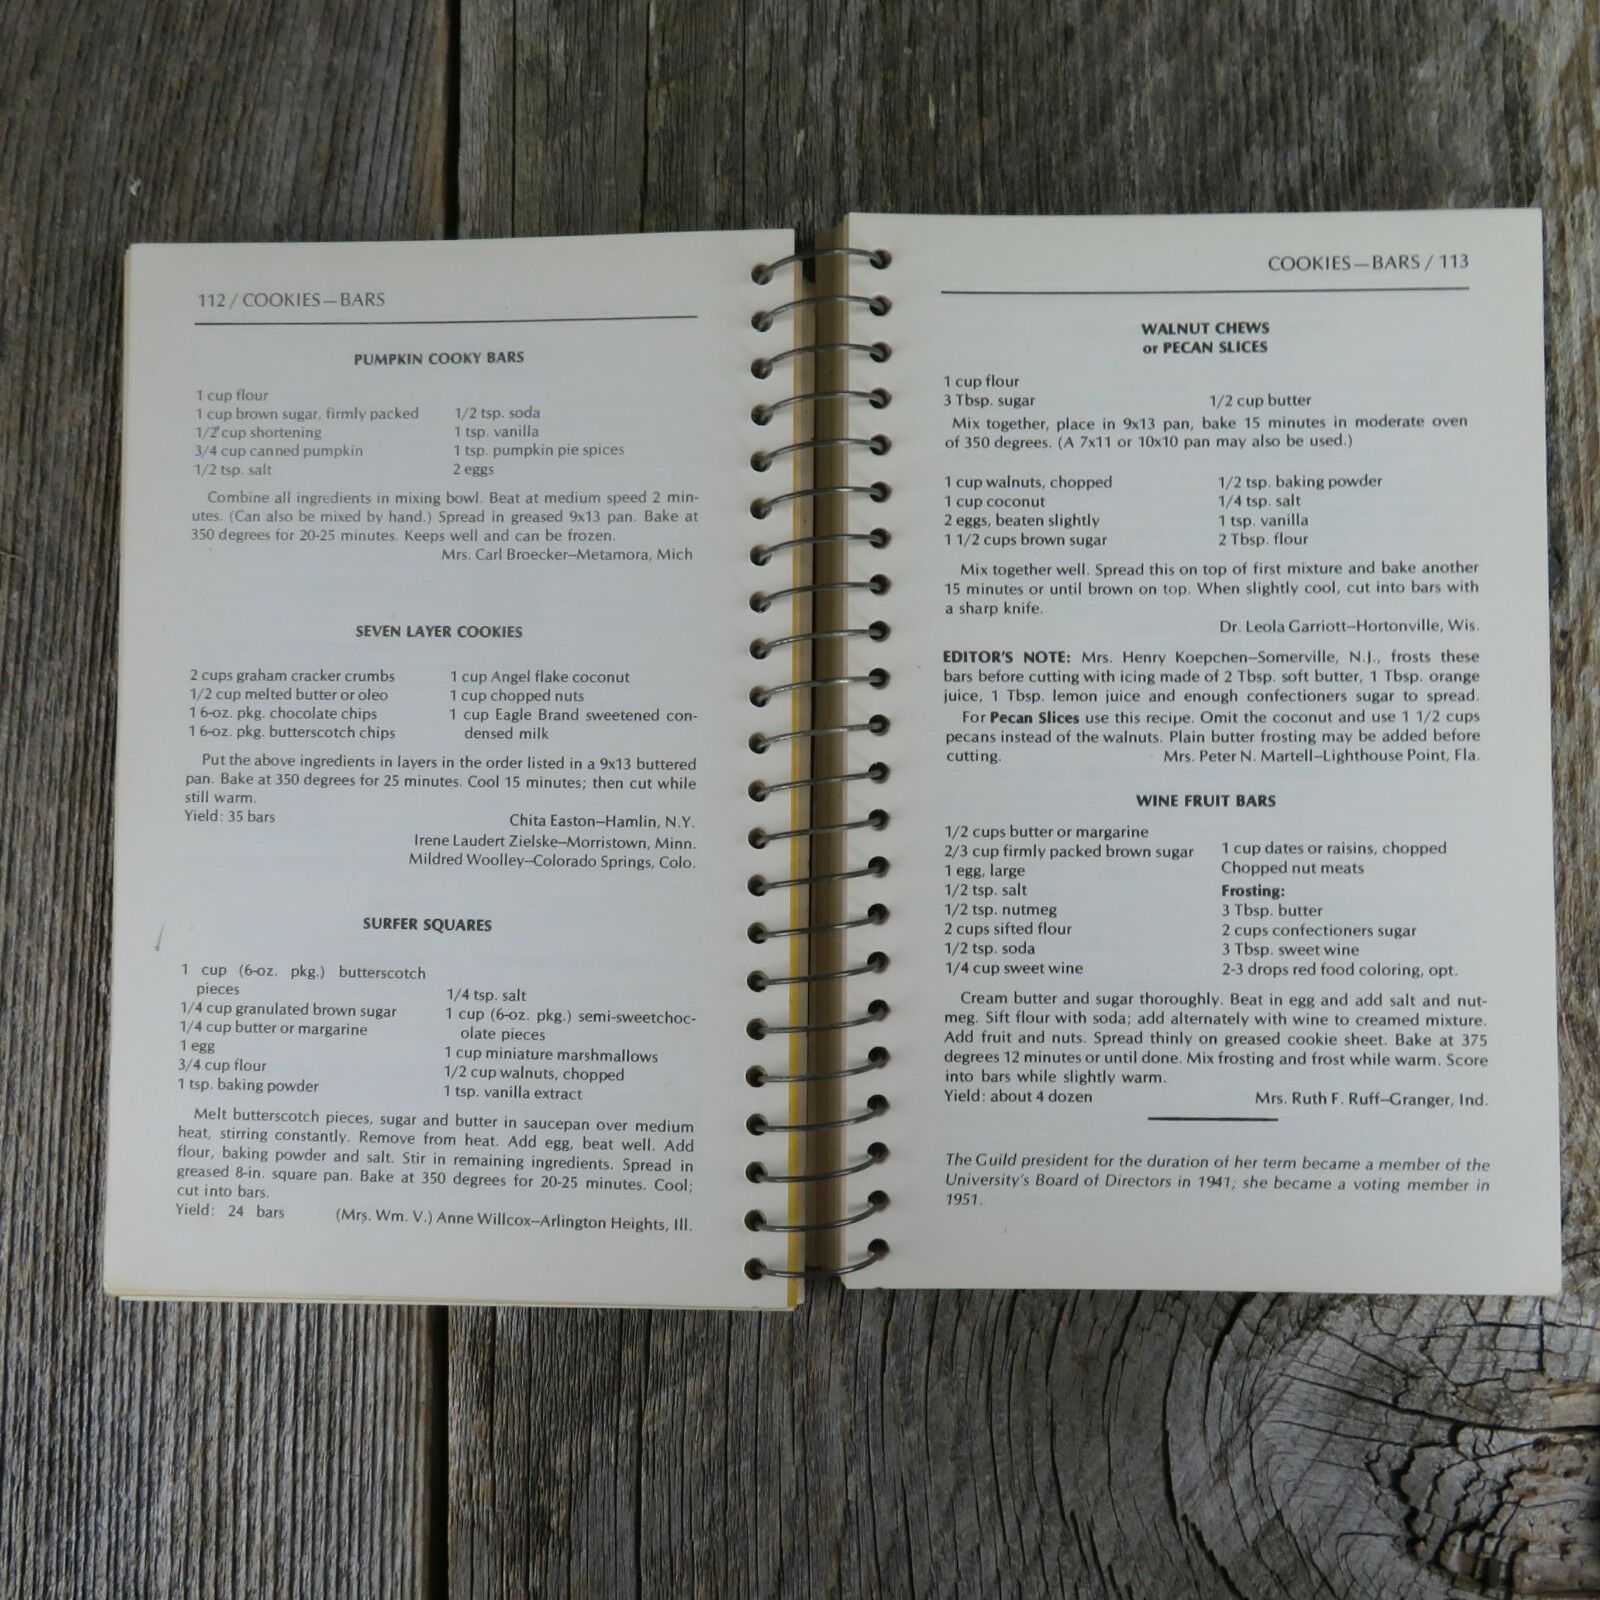 112 / COOKIES—BARS
PUMPKIN COOKY BARS
1 cup flour
1 cup brown sugar, firmly packed
1/2 cup shortening
3/4 cup canned pumpkin
1/2 tsp. salt
1/2 tsp. soda
1 tsp. vanilla
1 tsp. pumpkin pie spices
2 eggs
Combine all ingredients in mixing bowl. Beat at medium speed 2 min-
utes. (Can also be mixed by hand.) Spread in greased 9x13 pan. Bake at
350 degrees for 20-25 minutes. Keeps well and can be frozen.
Mrs. Carl Broecker—Metamora, Mich
SEVEN LAYER COOKIES
2 cups graham cracker crumbs
1/2 cup melted butter or oleo
1 6-oz. pkg. chocolate chips
1 6-oz. pkg. butterscotch chips
1 cup Angel flake coconut
1 cup chopped nuts
1 cup Eagle Brand sweetened con-
densed milk
Put the above ingredients in layers in the order listed in a 9x13 buttered
pan. Bake at 350 degrees for 25 minutes. Cool 15 minutes; then cut while
still warm.
Yield: 35 bars
Chita Easton—Hamlin, N.Y.
Irene Laudert Zielske—Morristown, Minn.
Mildred Woolley—Colorado Springs, Colo.
SURFER SQUARES
1 cup (6-oz. pkg.) butterscotch
pieces
1/4 cup granulated brown sugar
1/4 cup butter or margarine
1 egg
3/4 cup flour
1 tsp. baking powder
1/4 tsp. salt
1 cup (6-oz. pkg.) semi-sweetchoc-
olate pieces
1 cup miniature marshmallows
1/2 cup walnuts, chopped
1 tsp. vanilla extract
Melt butterscotch pieces, sugar and butter in saucepan over medium
heat, stirring constantly. Remove from heat. Add egg, beat well. Add
flour, baking powder and salt. Stir in remaining ingredients. Spread in
greased 8-in. square pan. Bake at 350 degrees for 20-25 minutes. Cool;
cut into bars.
Yield: 24 bars (Mrs. Wm. V.) Anne Willcox—Arlington Heights, Ill.
COOKIES—BARS / 113
WALNUT CHEWS
or PECAN SLICES
1 cup flour
3 Tbsp. sugar
1/2 cup butter
Mix together, place in 9x13 pan, bake 15 minutes in moderate oven
of 350 degrees. (A 7x11 or 10x10 pan may also be used.)
1 cup walnuts, chopped
1 cup coconut
2 eggs, beaten slightly
1 1/2 cups brown sugar
1/2 tsp. baking powder
1/4 tsp. salt
1 tsp. vanilla
2 Tbsp. flour
Mix together well. Spread this on top of first mixture and bake another
15 minutes or until brown on top. When slightly cool, cut into bars with
a sharp knife.
Dr. Leola Garriott—Hortonville, Wis.
EDITOR'S NOTE: Mrs. Henry Koepchen—Somerville, N.J., frosts these
bars before cutting with icing made of 2 Tbsp. soft butter, 1 Tbsp. orange
juice, 1 Tbsp. lemon juice and enough confectioners sugar to spread.
For Pecan Slices use this recipe. Omit the coconut and use 1 1/2 cups
pecans instead of the walnuts. Plain butter frosting may be added before
cutting. Mrs. Peter N. Martell—Lighthouse Point, Fla.
WINE FRUIT BARS
1/2 cups butter or margarine
2/3 cup firmly packed brown sugar
1 egg, large
1/2 tsp. salt
1/2 tsp. nutmeg
2 cups sifted flour
1/2 tsp. soda
1/4 cup sweet wine
1 cup dates or raisins, chopped
Chopped nut meats
Frosting:
3 Tbsp. butter
2 cups confectioners sugar
3 Tbsp. sweet wine
2-3 drops red food coloring, opt.
Cream butter and sugar thoroughly. Beat in egg and add salt and nut-
meg. Sift flour with soda; add alternately with wine to creamed mixture.
Add fruit and nuts. Spread thinly on greased cookie sheet. Bake at 375
degrees 12 minutes or until done. Mix frosting and frost while warm. Score
into bars while slightly warm.
Yield: about 4 dozen Mrs. Ruth F. Ruff—Granger, Ind.
The Guild president for the duration of her term became a member of the
University's Board of Directors in 1941; she became a voting member in
1951.